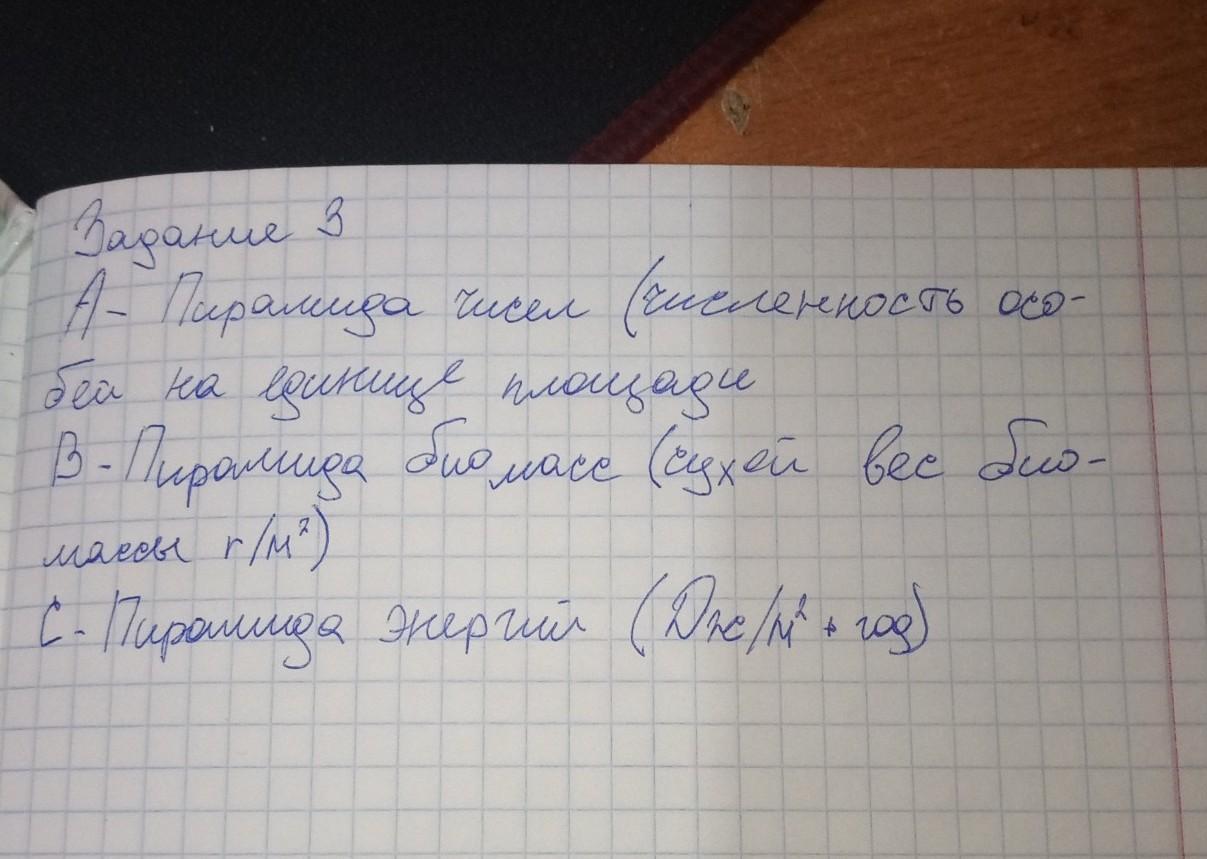 Задание 3
А - Пирамида чисел (численность осо-
бей на единице площади
В - Пирамида биомасс (сухой вес био-
массы г/м²)
С - Пирамида энергий (Дж/м² • год)